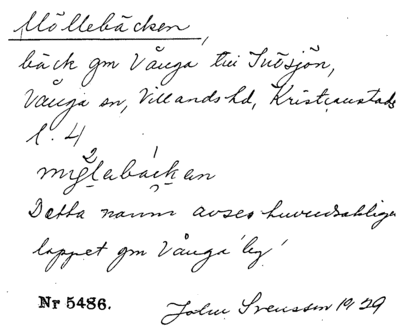 Möllebäcken,
bäck gm Vånga till Ivösjön,
Vånga sn, Villands hd, Kristianstads
l. 4
2 1
Detta namn avses huvudsakligen
loppet gm Vånga 'by'
Nr 5486. John Svensson 1929